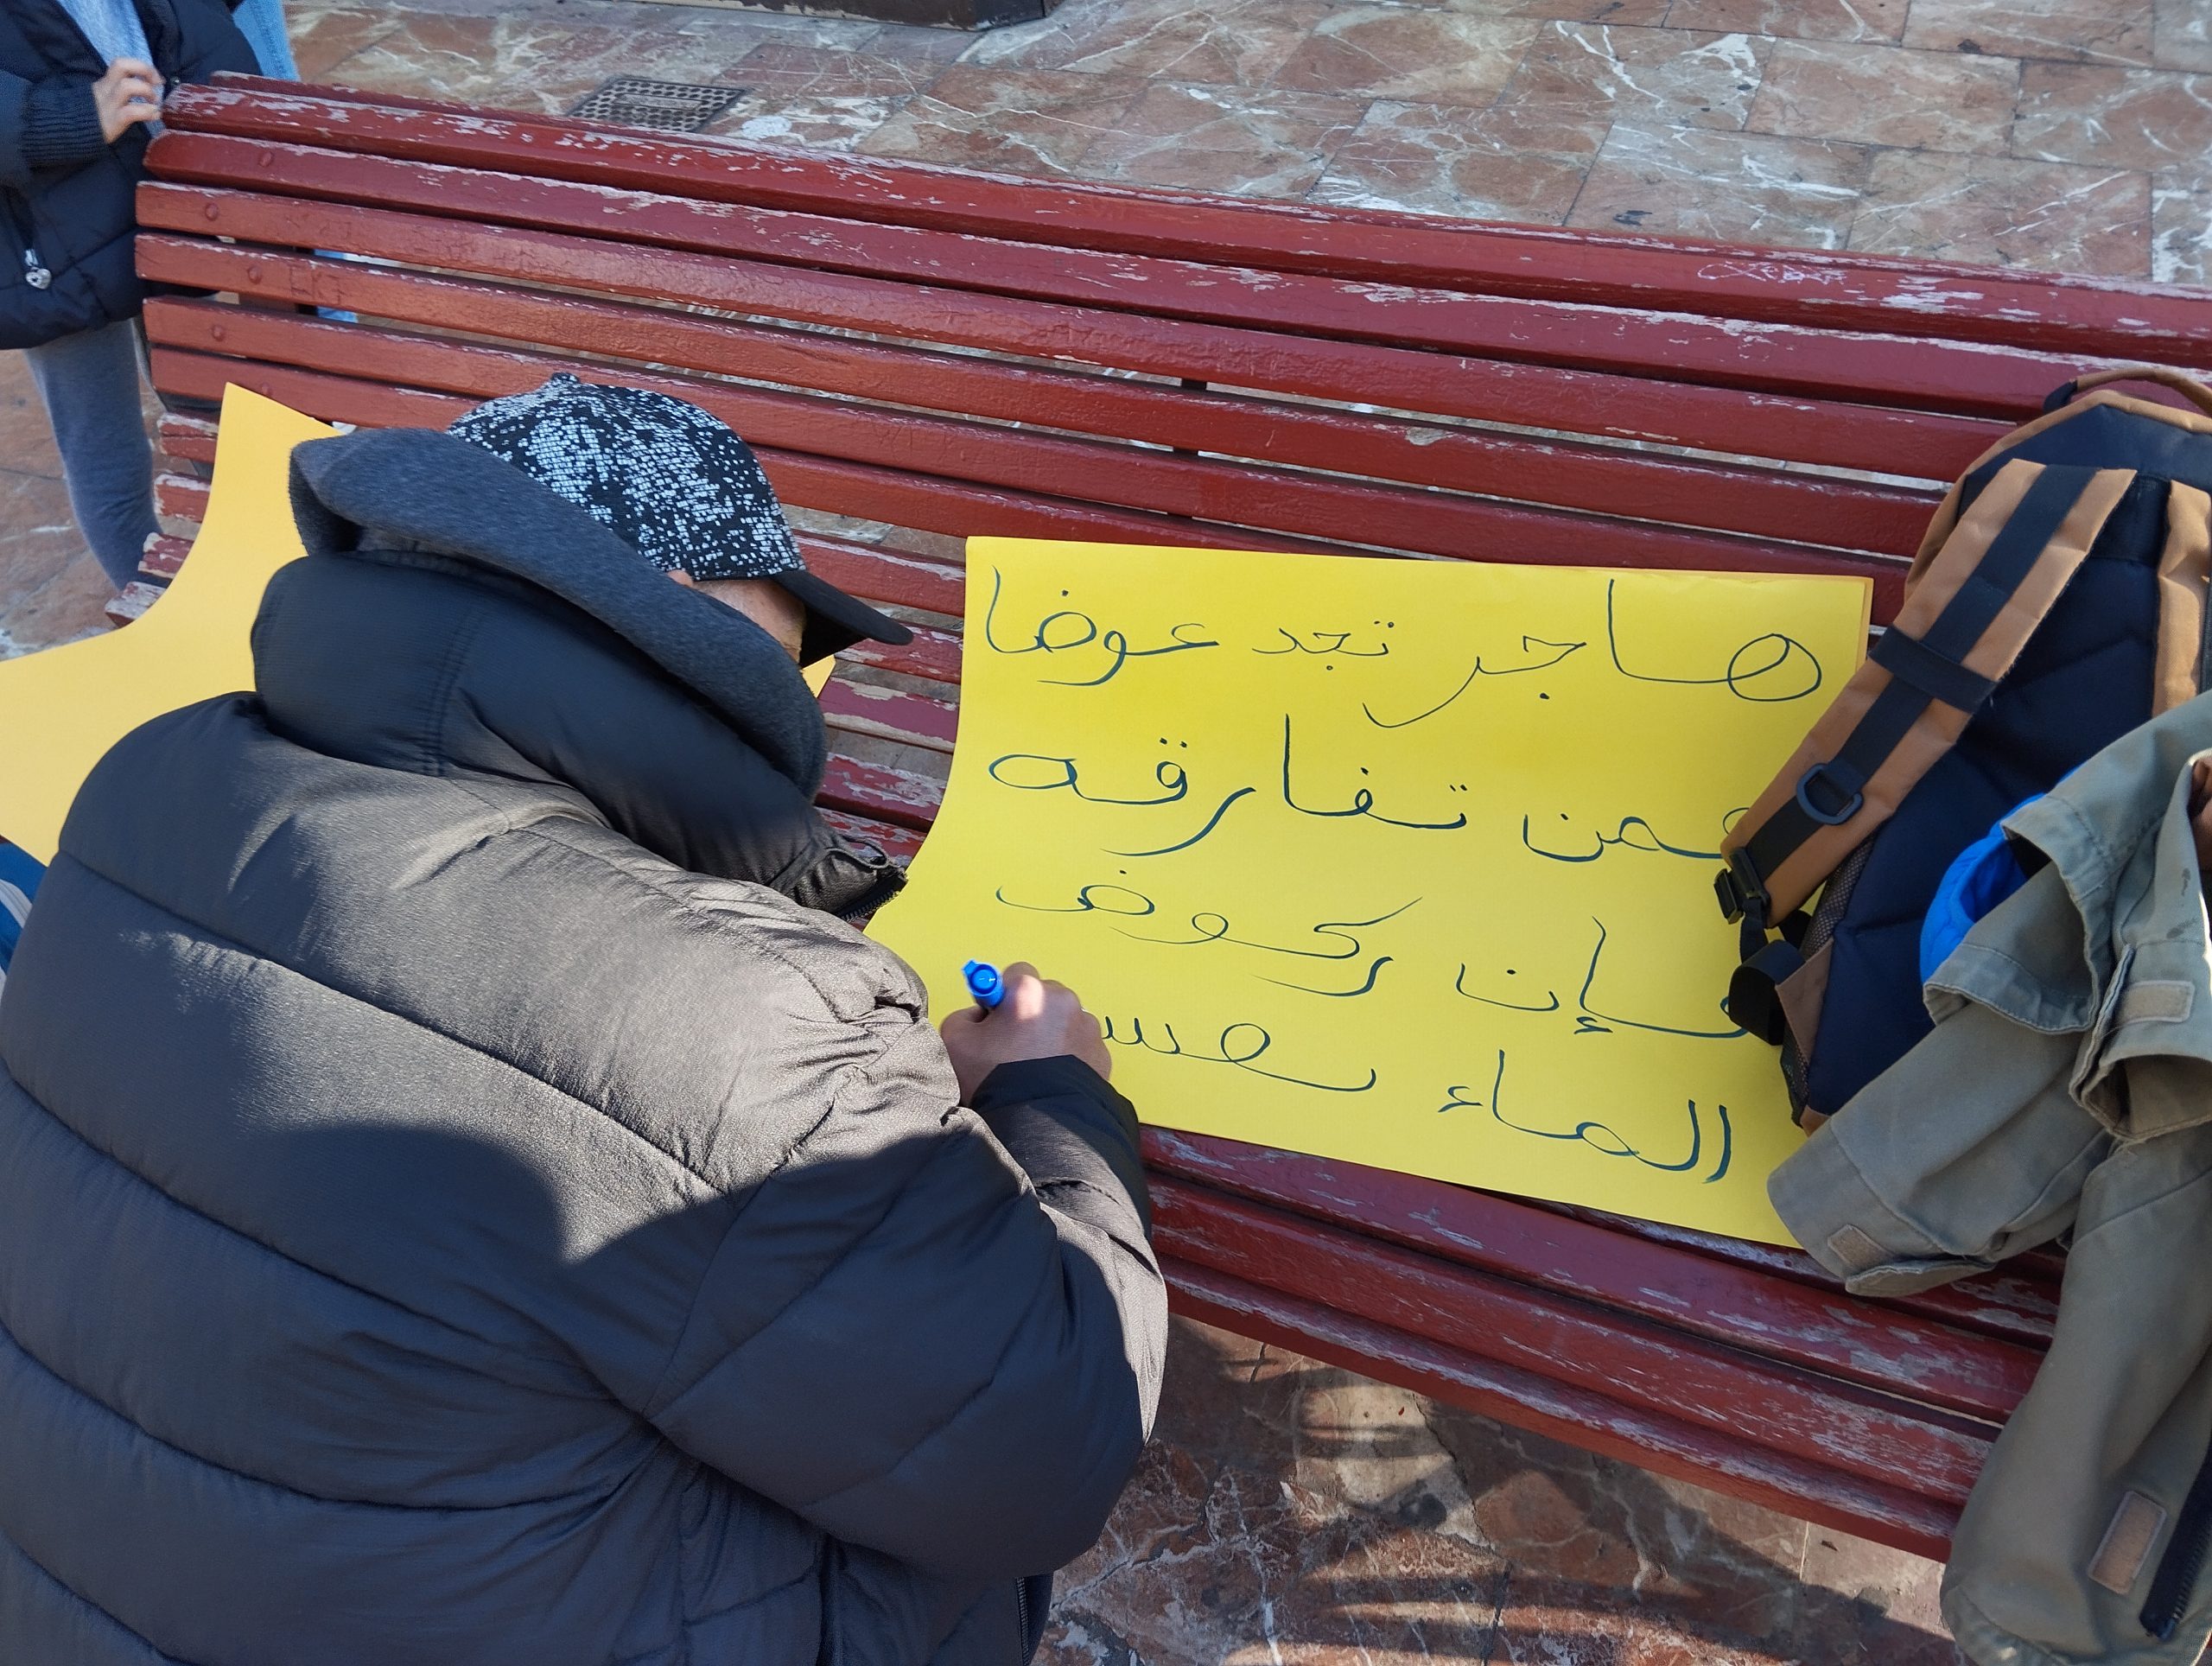 هاجر تجد عوضا
عمن تفارقه
فإن ركوض
الماء يفس